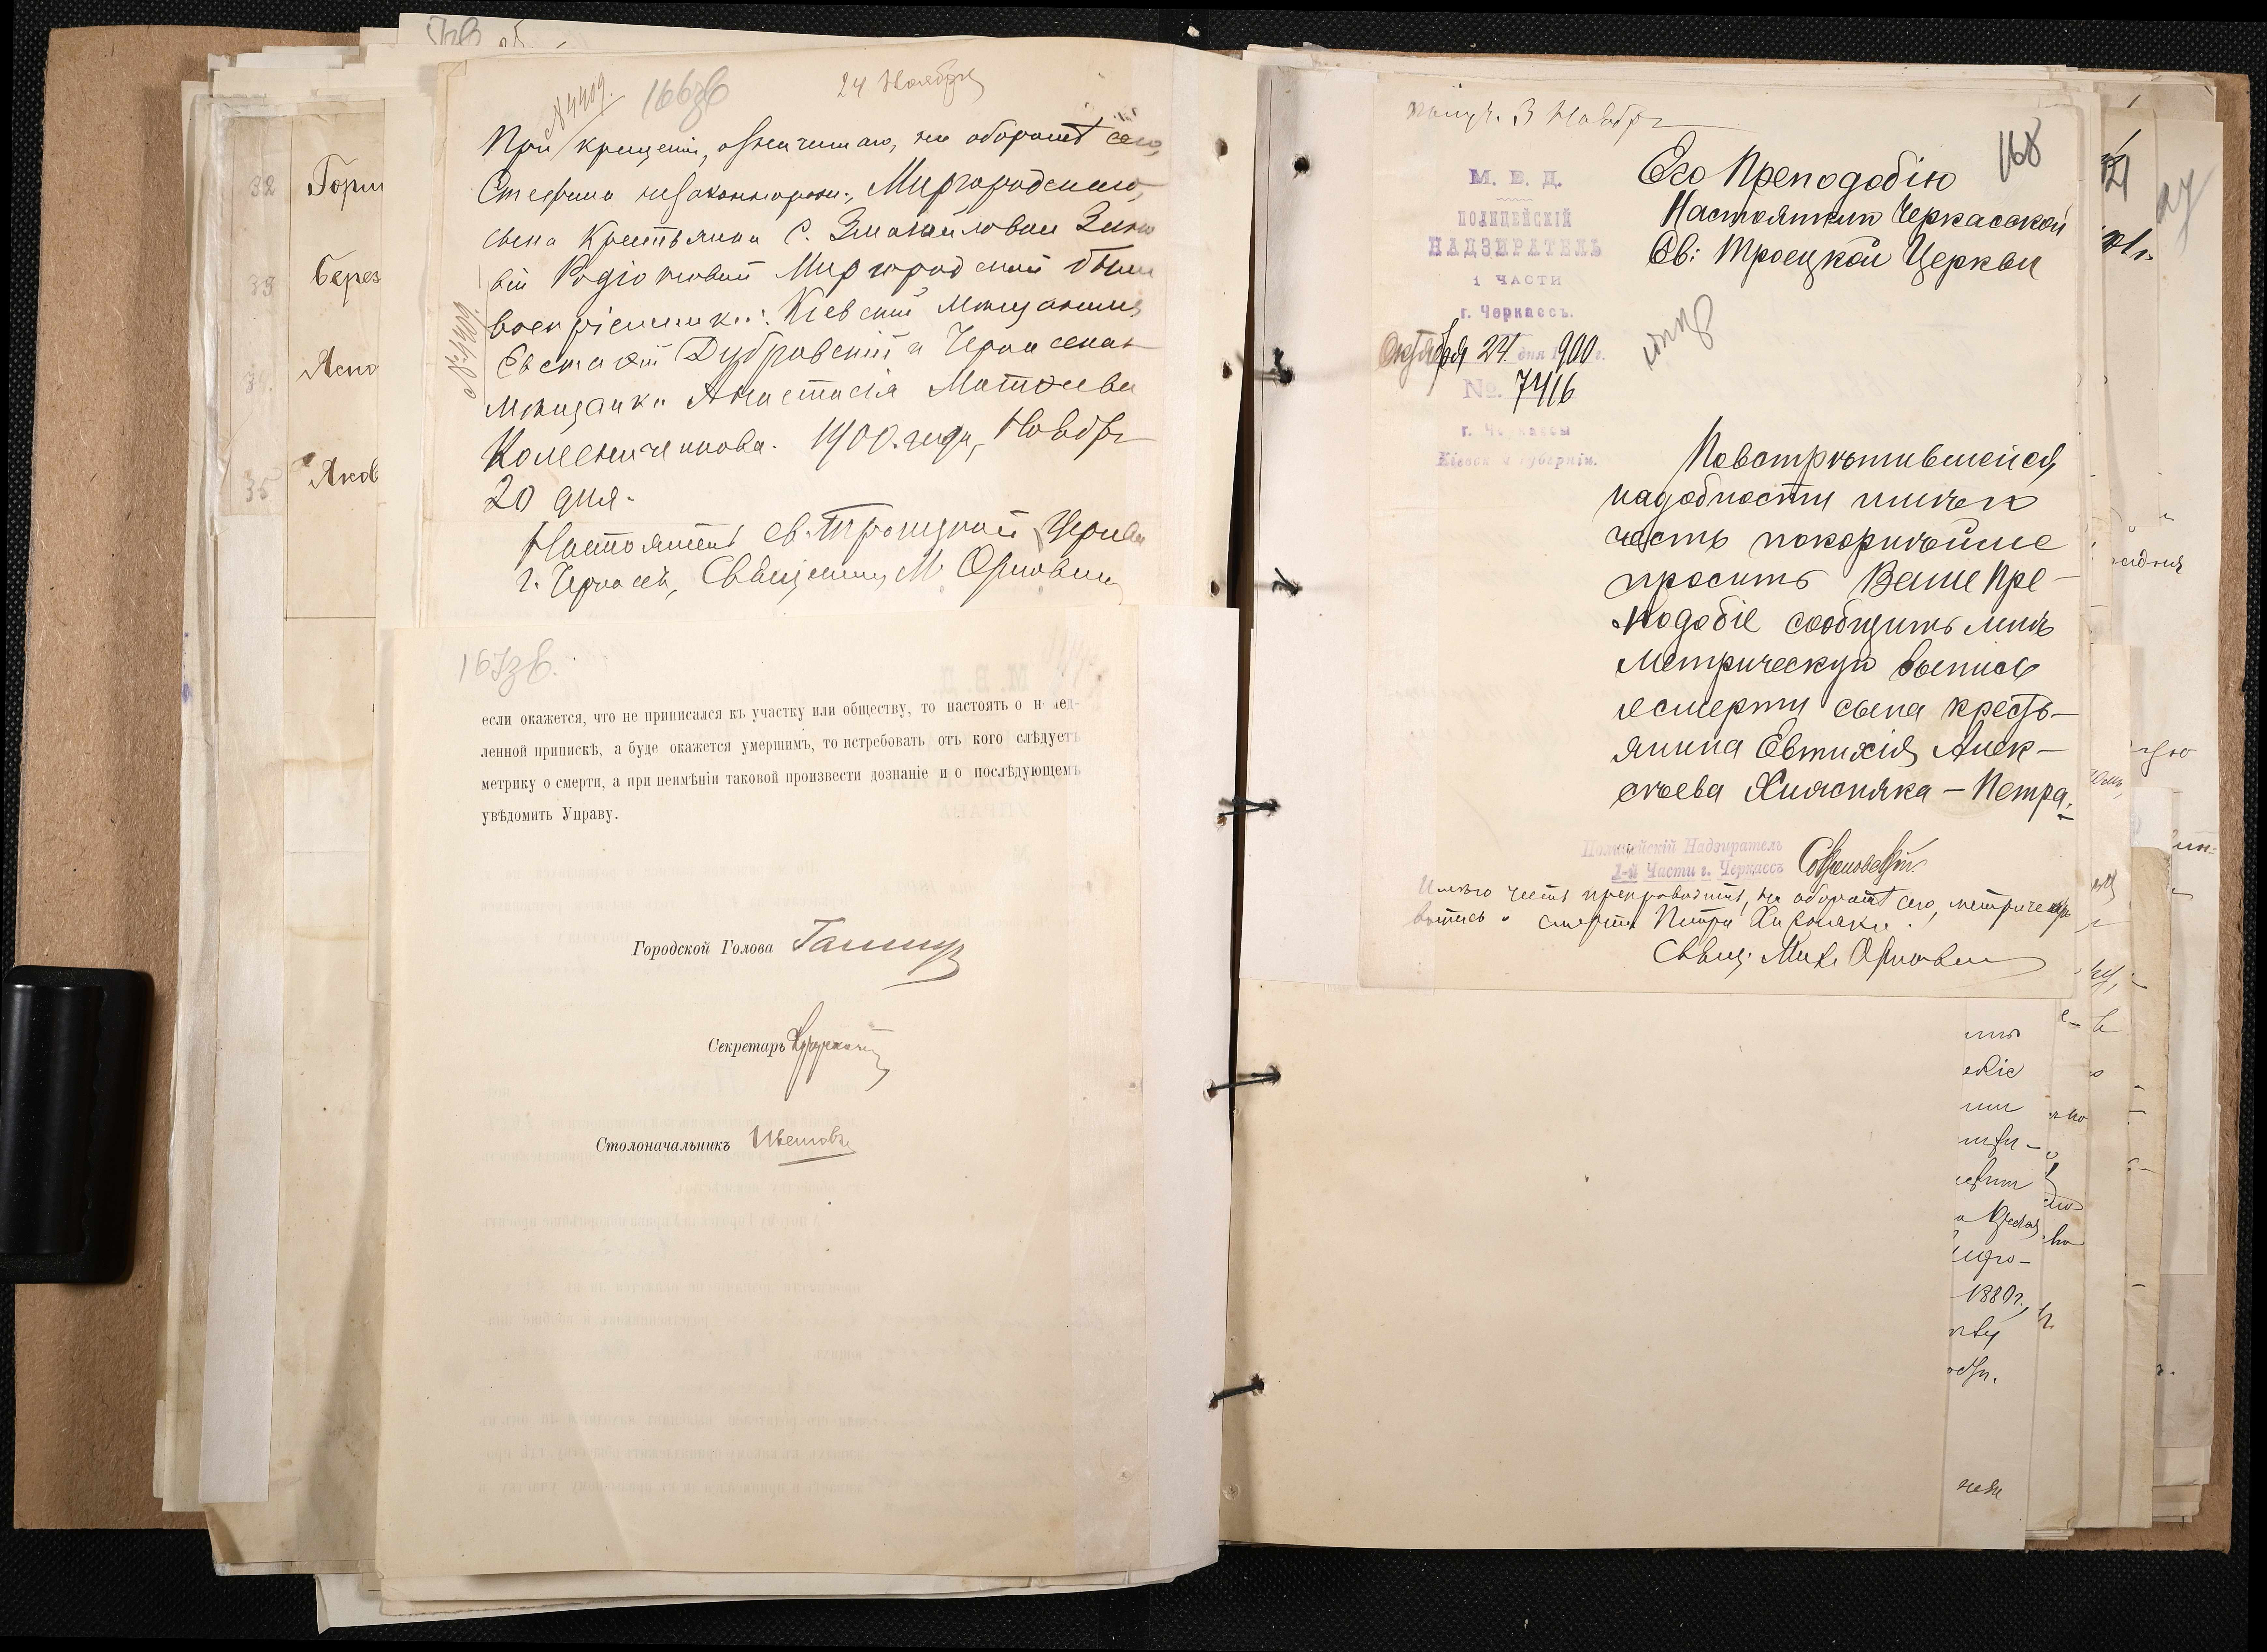 № 4409.
166зв
24 Ноября
При крещеніи, означеннаго, на оборотѣ сего,
Стефана незаконнорожд., Миргородскаго,
сына крестьянки с. Змагайловки
Родіоновой Миргородской были
воспріемник.: Кіевскій мѣщанинъ
Евстафій Дубровскій и Черкасская
мѣщанка Анастасія Матѳеева
Колесниченкова. 1900. года, Ноября
20 дня.
Настоятель Св.-Троицкой Церкви
г. Черкассъ, Священникъ М. Орловскій
№ 4409.
167зв.
если окажется, что не приписался къ участку или обществу, то настоять о немед-
ленной припискѣ, а буде окажется умершимъ, то истребовать отъ кого слѣдуетъ
метрику о смерти, а при неимѣніи таковой произвести дознаніе и о послѣдующемъ
увѣдомить Управу.
Городской Голова
Секретарь
Столоначальникъ
32 Горш
33 Берез
34. Ясно
35 Яков
получ. 3 Ноября
168
М. В. Д.
ПОЛИЦЕЙСКІЙ
НАДЗИРАТЕЛЬ
1 ЧАСТИ
г. Черкассъ.
Октября 24 дня 1900 г.
№. 7416
г. Черкассы
Кіевской губерніи.
Его Преподобію
Настоятелю Черкасской
Св: Троецкой Церкви
Повстрѣтившейся
надобности имѣю
честь покорнѣйше
просить Ваше Пре-
подобіе сообщить мнѣ
метрическую выпись
о смерти сына кресть-
янина Евтихія Алек-
сѣева Хижняка - Петра.
Полицейскій Надзиратель
1-й Части г. Черкассъ
Имѣю честь препроводить, на оборотѣ сего, метрическую
выпись о смерти Петра Хижняка.
Свящ. Мих. Орловскій
1889г.